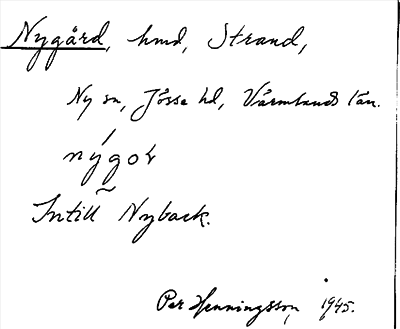 Nygård, hmd, Strand,
Ny sn, Jösse hd, Värmlands län.
nýgoŕ
Intill Nyback.
Per Henningsson, 1945.